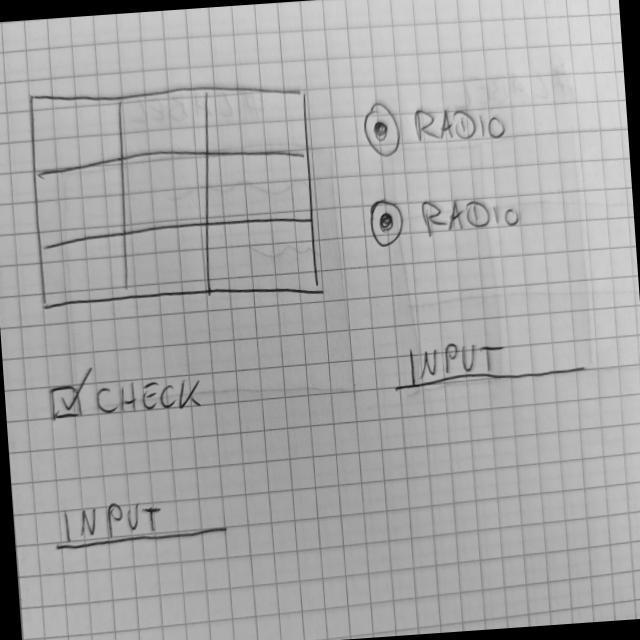 RADIO
RADIO
INPUT
CHECK
INPUT